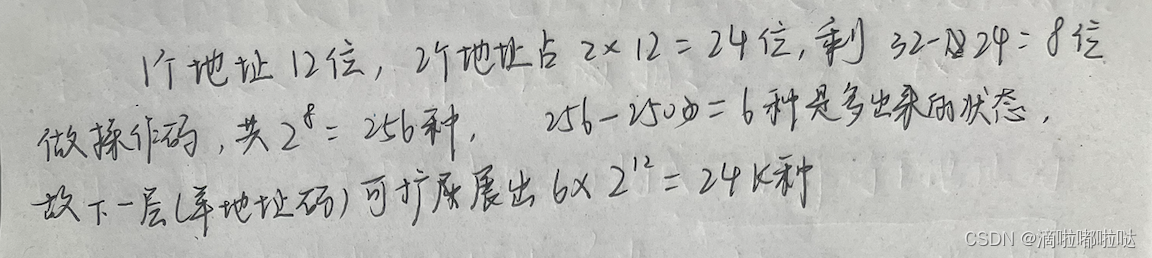 1个地址12位，2个地址占 2×12=24位，剩 32-24=8位
做操作码，共2⁸=256种， 256-250=6种是多出来的状态，
故下一层(单地址码)可扩展出 6×2¹²=24K种
CSDN @滴啦嘟啦哒